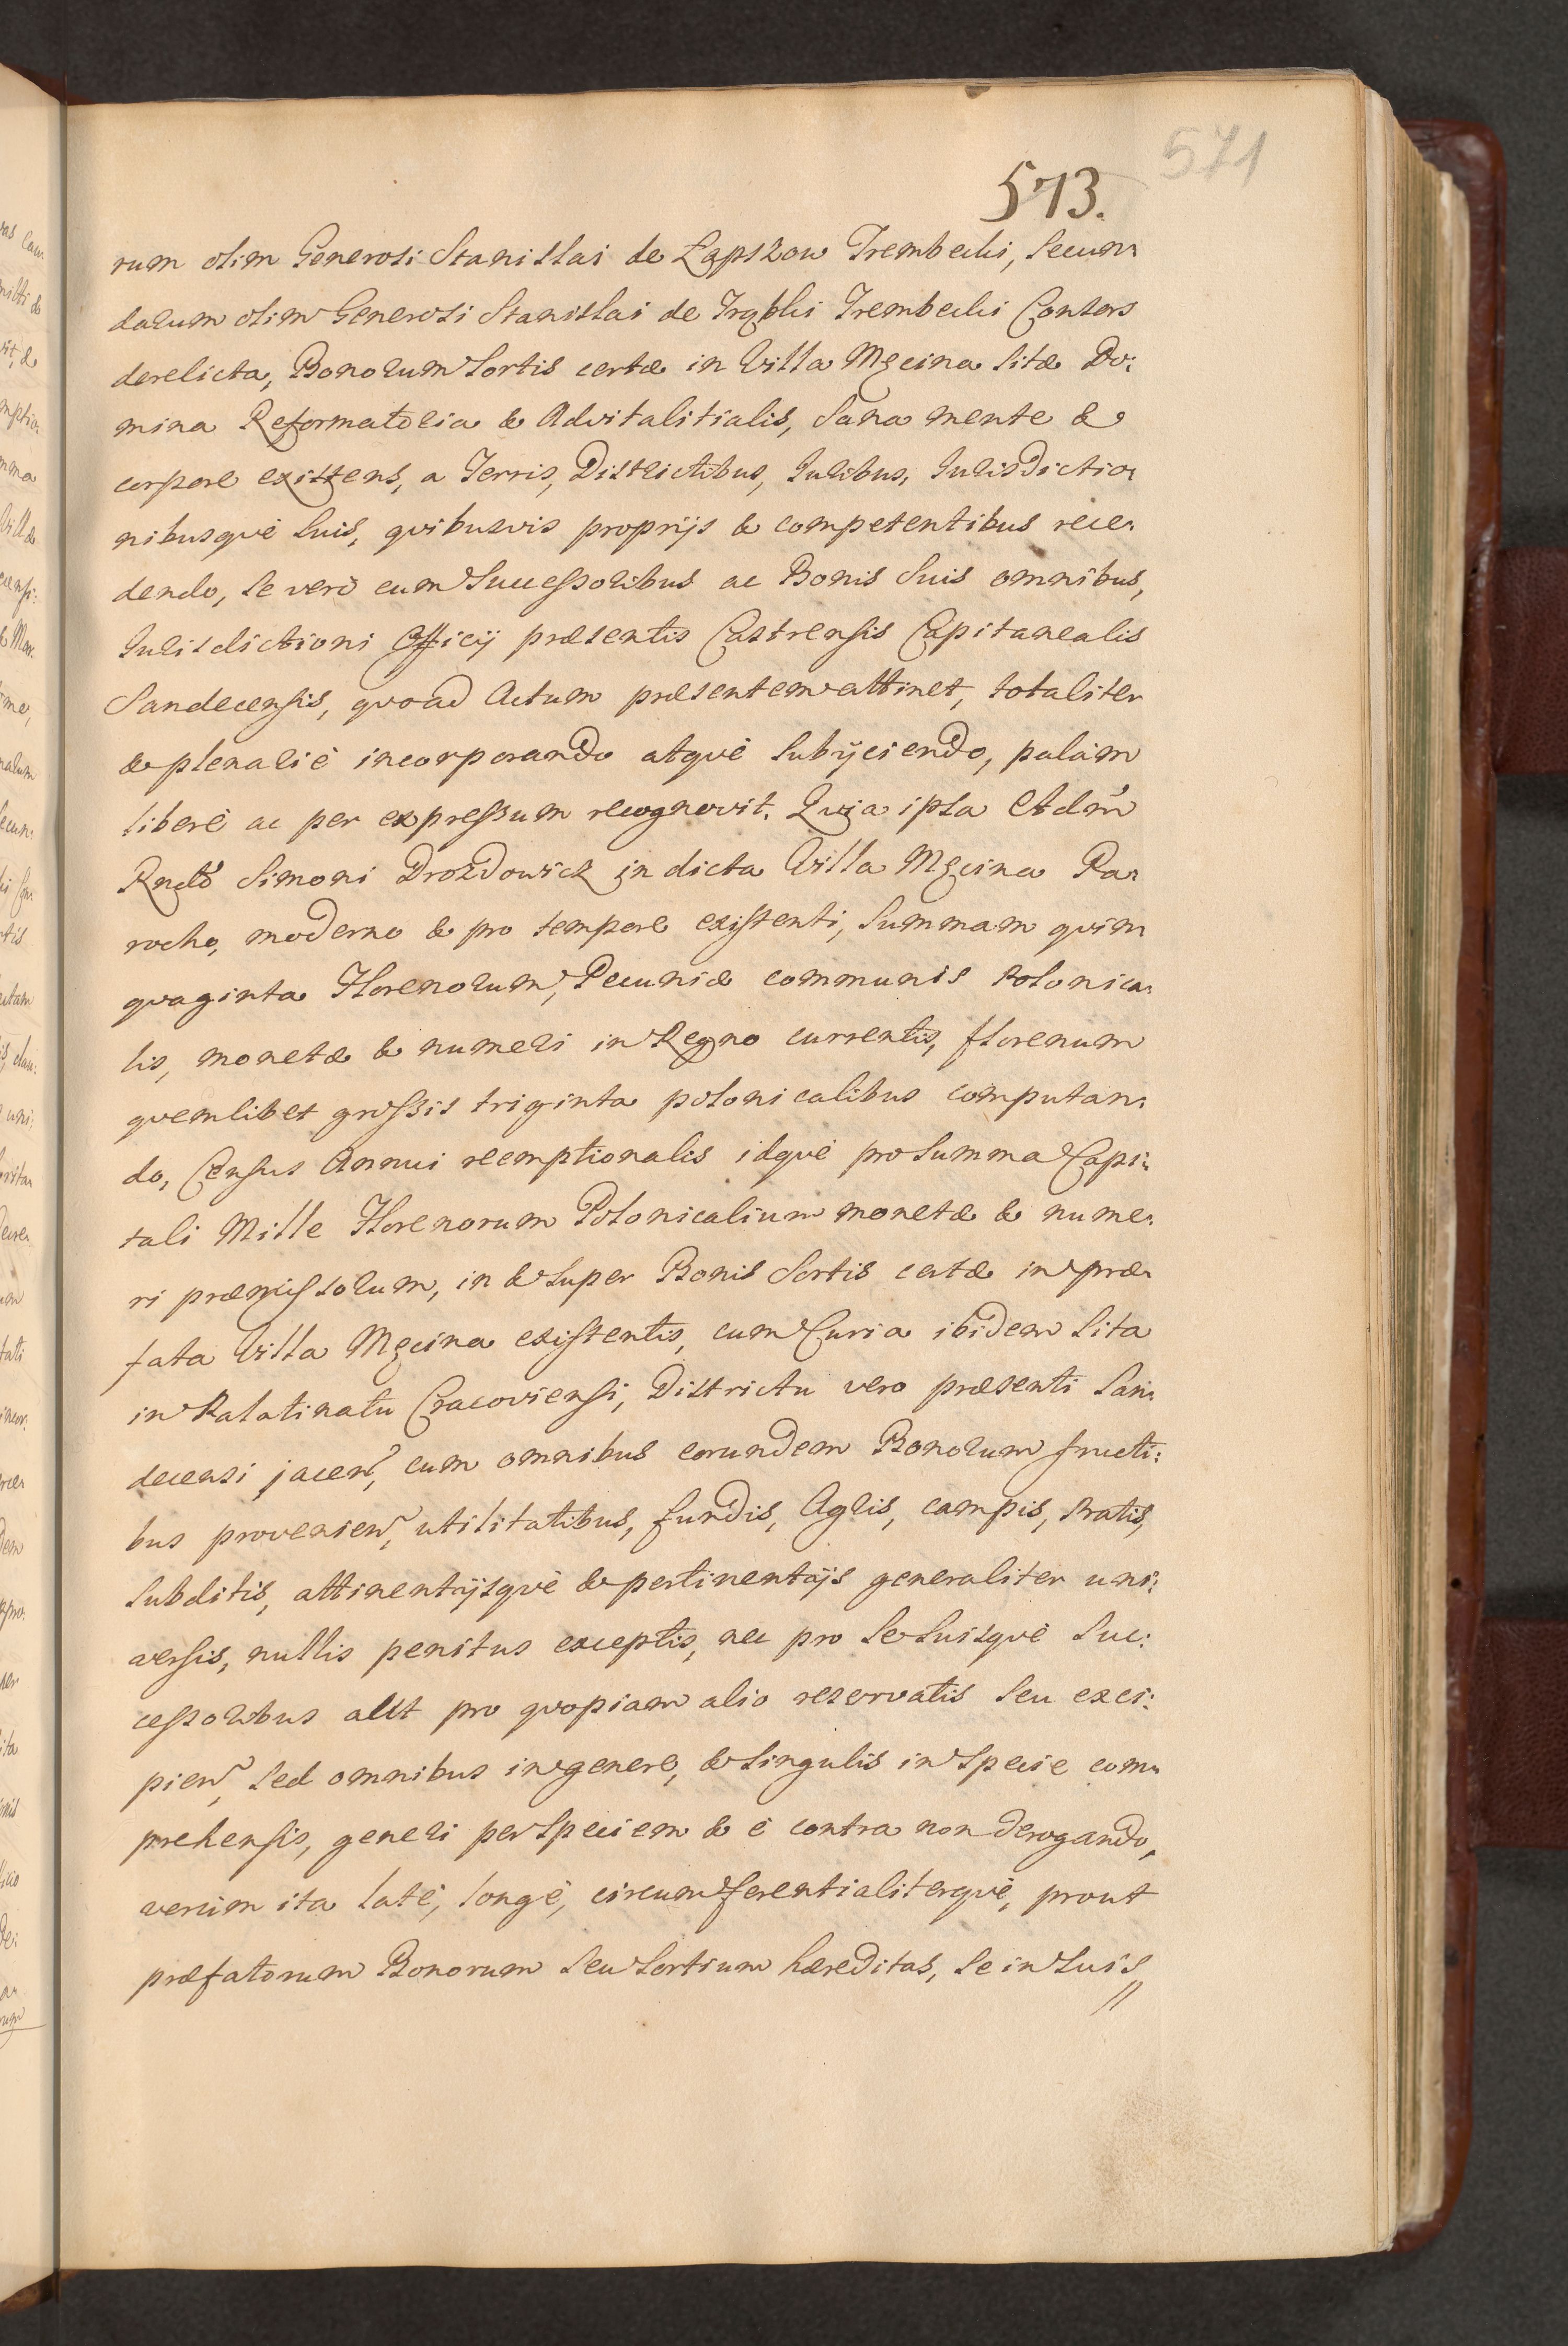 571
573.
rum olim Generosi Stanislai de Łapszow Trembecki, Secun:
darum olim Generosi Stanislai de Trąbki Trembecki Consors
derelicta, Bonorum Sortis certæ in Villa Męcina sitæ Do:
mina Reformatoria & Advitalitialis, Sana mente &
corpore existens, a Terris, Districtibus, Iuribus, Iurisdictio:
nibusquè suis, quibusvis proprijs & competentibus rece:
dendo, se verò cum Successoribus ac Bonis Suis omnibus,
Iurisdictioni Officij præsentis Castrensis Capitanealis
Sandecensis, quoad Actum præsentem attinet, totaliter
& plenariè incorporando atquè subijciendo, palàm
liberè ac per expressum recognovit. Quia ipsa Adm̃
Rndo Simoni Drozdowicz in dicta Villa Męcina Pa:
rocho, moderno & pro tempore existenti, Summam quin
quaginta Florenorum, Pecuniæ communis Polonica:
lis, monetæ & numeri in Regno currentis, florenum
quemlibet grossis triginta polonicalibus computan:
do, Census Annui reemptionalis idquè pro Summa Capi:
tali Mille Florenorum Polonicalium monetæ & nume:
ri præmissorum, in & super Bonis Sortis certæ in præ:
fata Villa Męcina existentis, cum Curia ibidem sita
in Palatinatu Cracoviensi, Districtu vero præsenti San:
decensi jacen̄, cum omnibus eorundem Bonorum fructi:
bus provenien̄, utilitatibus, fundis, Agris, campis, Pratis,
Subditis, attinentijsquè & pertinentijs generaliter uni:
versis, nullis penitus exceptis, nec pro se Suisquè Suc:
cessoribus aut pro quopiam alio reservatis seu exci:
pien̄, Sed omnibus in genere, & singulis in Specie com:
prehensis, generi per Speciem & è contra non derogando,
verùm ita latè, longè, circumferentialiterquè, prout
præfatorum Bonorum seu Sortium hæreditas, se in Suis